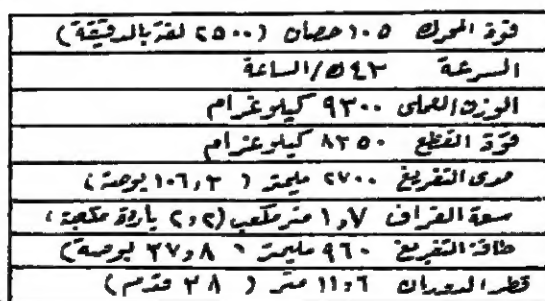 قوة المحرك ١٠٥ حصان (٢٥٠٠ لفة بالدقيقة)
السرعة ٤٢ك٥/الساعة
الوزن العملى ٩٣٠٠ كيلوغرام
قوة القطع ٨٢٥٠ كيلوغرام
مدى التفريغ ٢٧٠٠ مليمتر (١٠٦,٣ يوصة)
سعة الغراف ١,٧ مترمكعب (٢,٢ ياردة مكعبة)
طاقة التفريغ ٩٦٠ مليمتر (٣٧,٨ بوصة)
قطر الدوران ١١,٦ متر (٣٨ قدم)